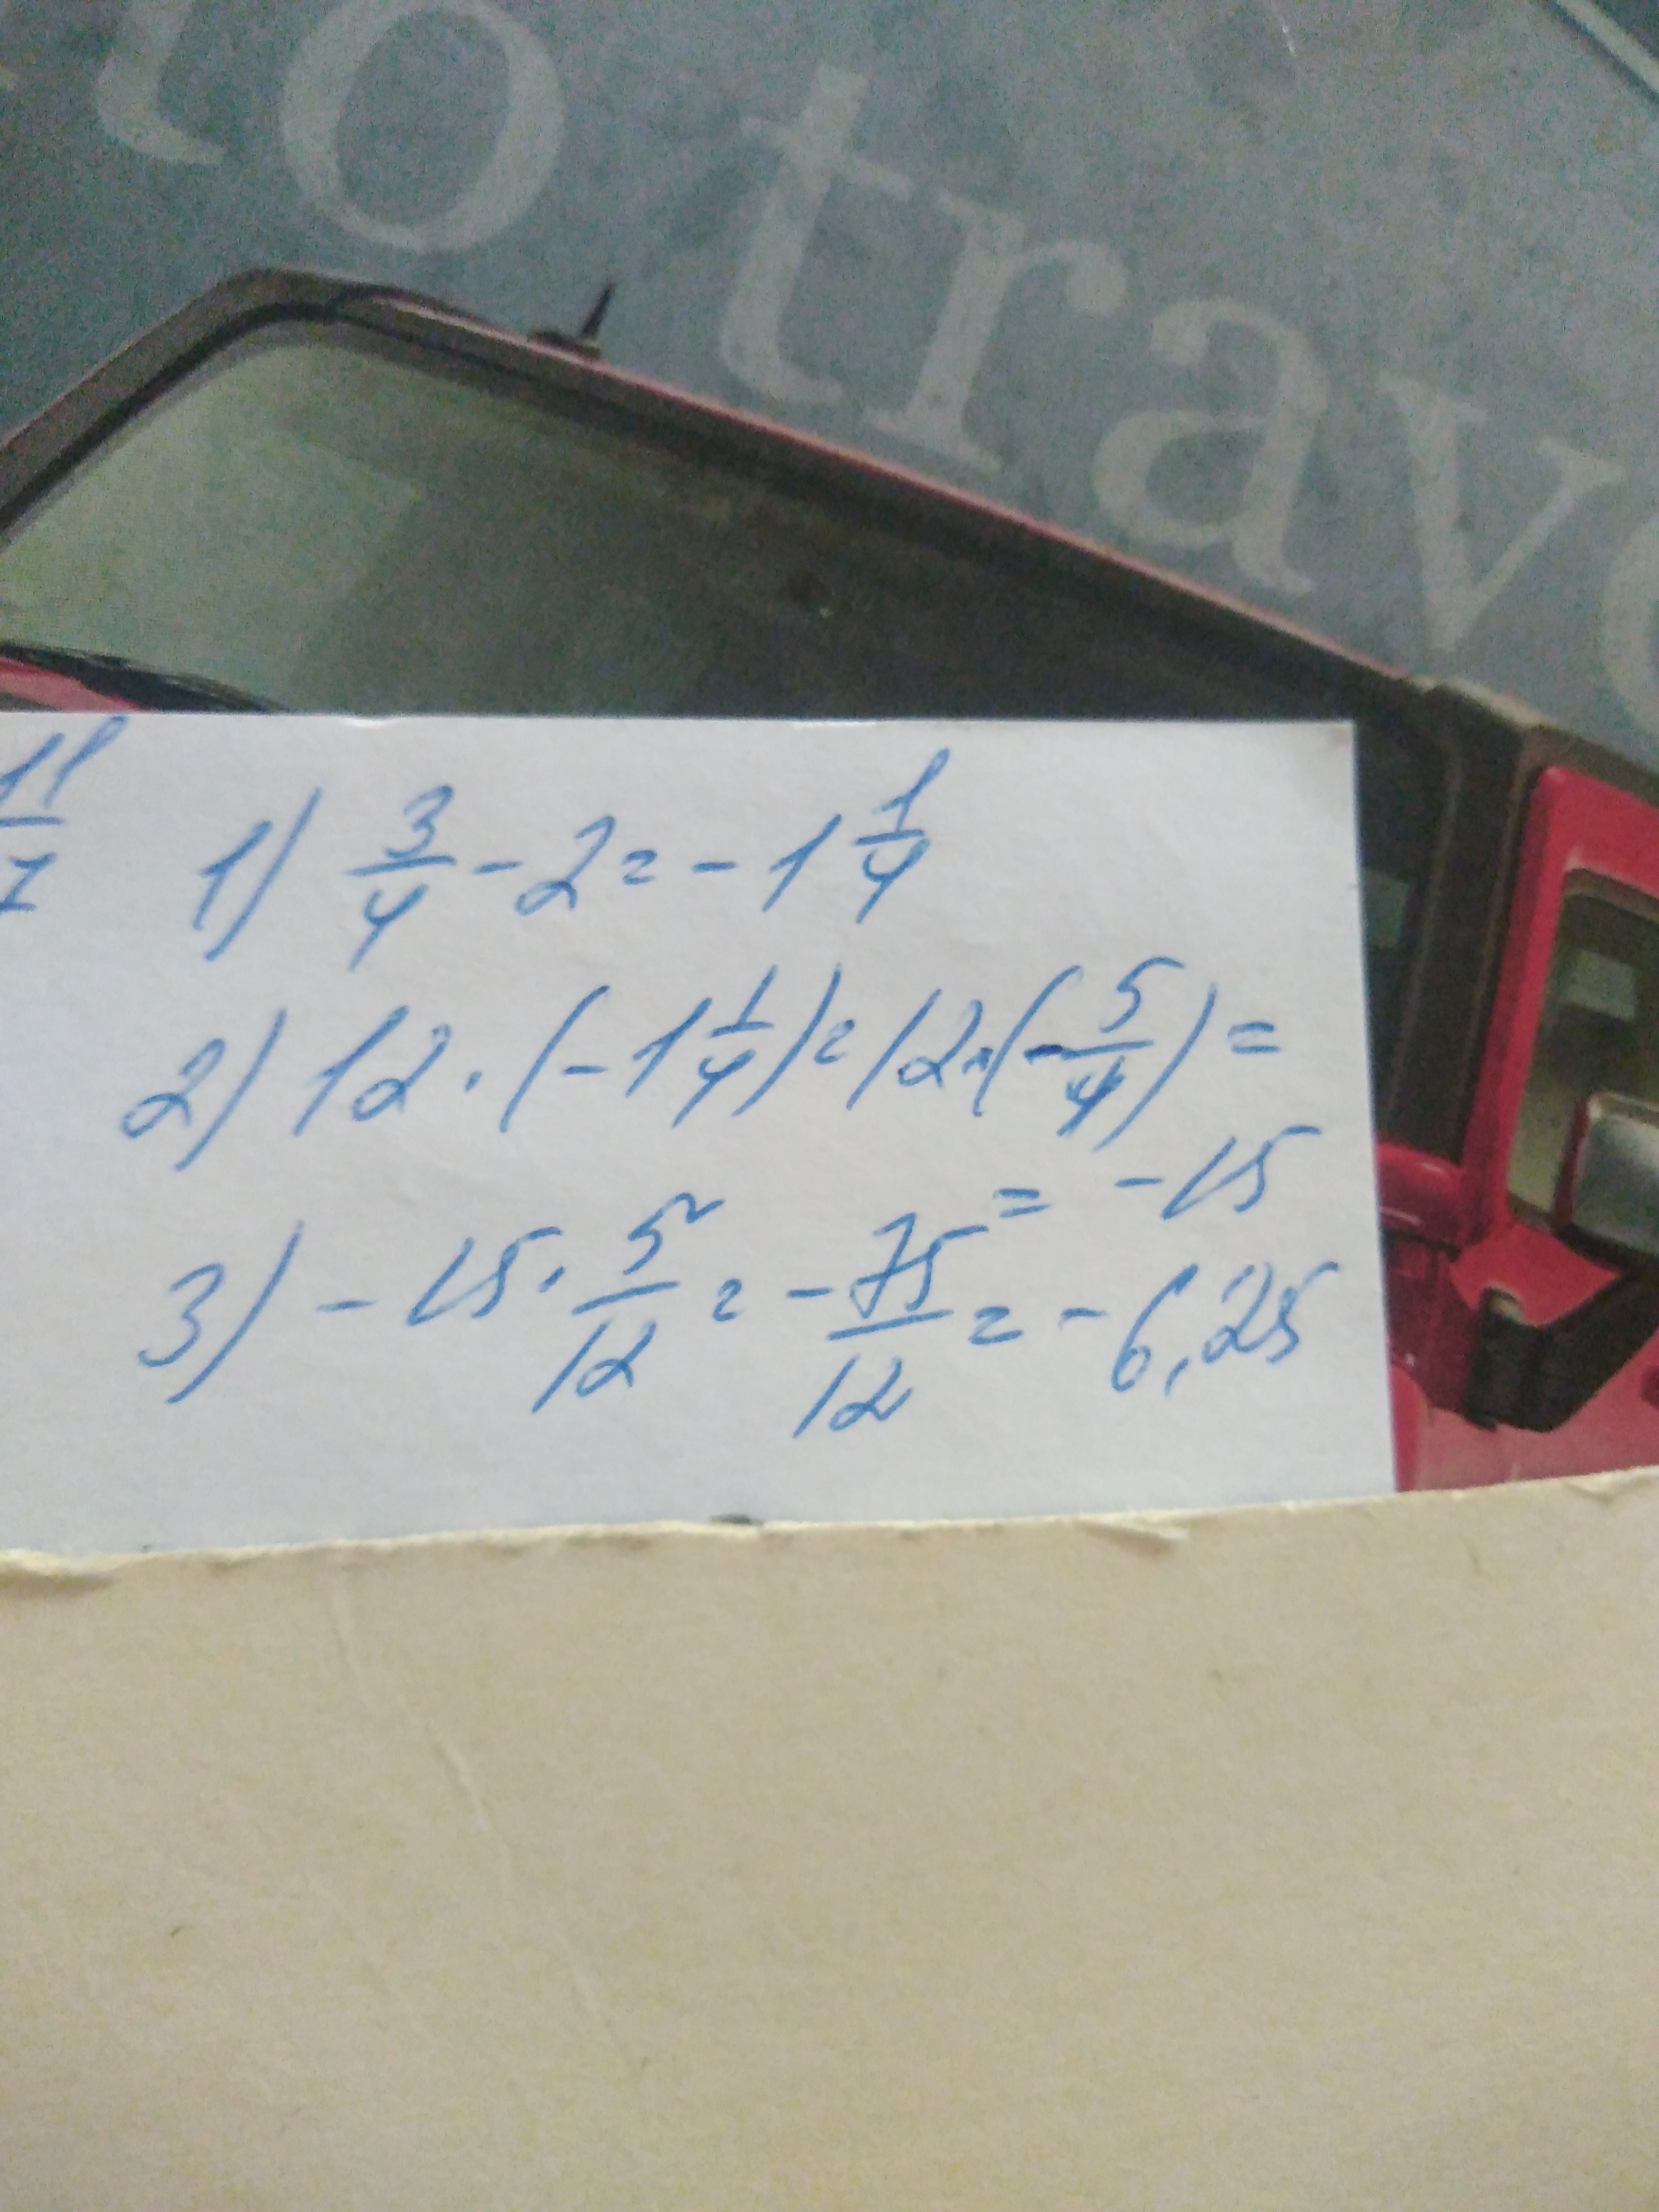 to trave
11/7
1) 3/4 - 2 = - 1 1/4
2) 12 · (- 1 1/4) = 12 · (- 5/4) =
= - 15
3) - 15 · 5/12 = - 75/12 = - 6,25